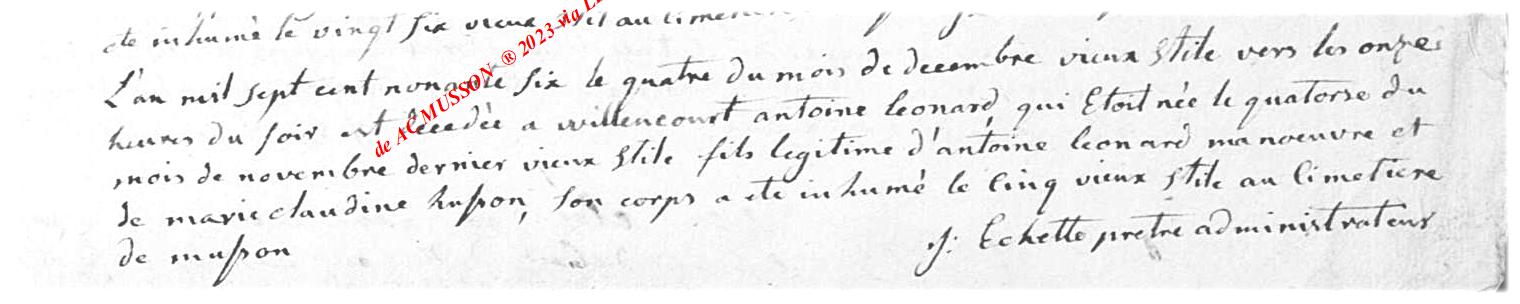 ete inhumé le vingt six vieux stil au cimetiere
L'an mil sept cent nonante six le quatre du mois de decembre vieux Stile vers les onze
heures du soir est decedée a willencourt antoine leonard qui Etoit née le quatorze du
mois de novembre dernier vieux Stile fils legitime d'antoine leonard manoeuvre et
de marie claudine husson, son corps a ete inhumé le cinq vieux Stile au cimetiere
de musson
J: Echette pretre administrateur
de ACMUSSON ® 2023 via